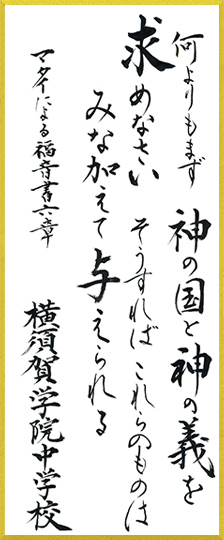 何よりもまず 神の国と神の義を
求めなさい そうすれば これらのものは
みな加えて与えられる
マタイによる福音書六章
横須賀学院中学校